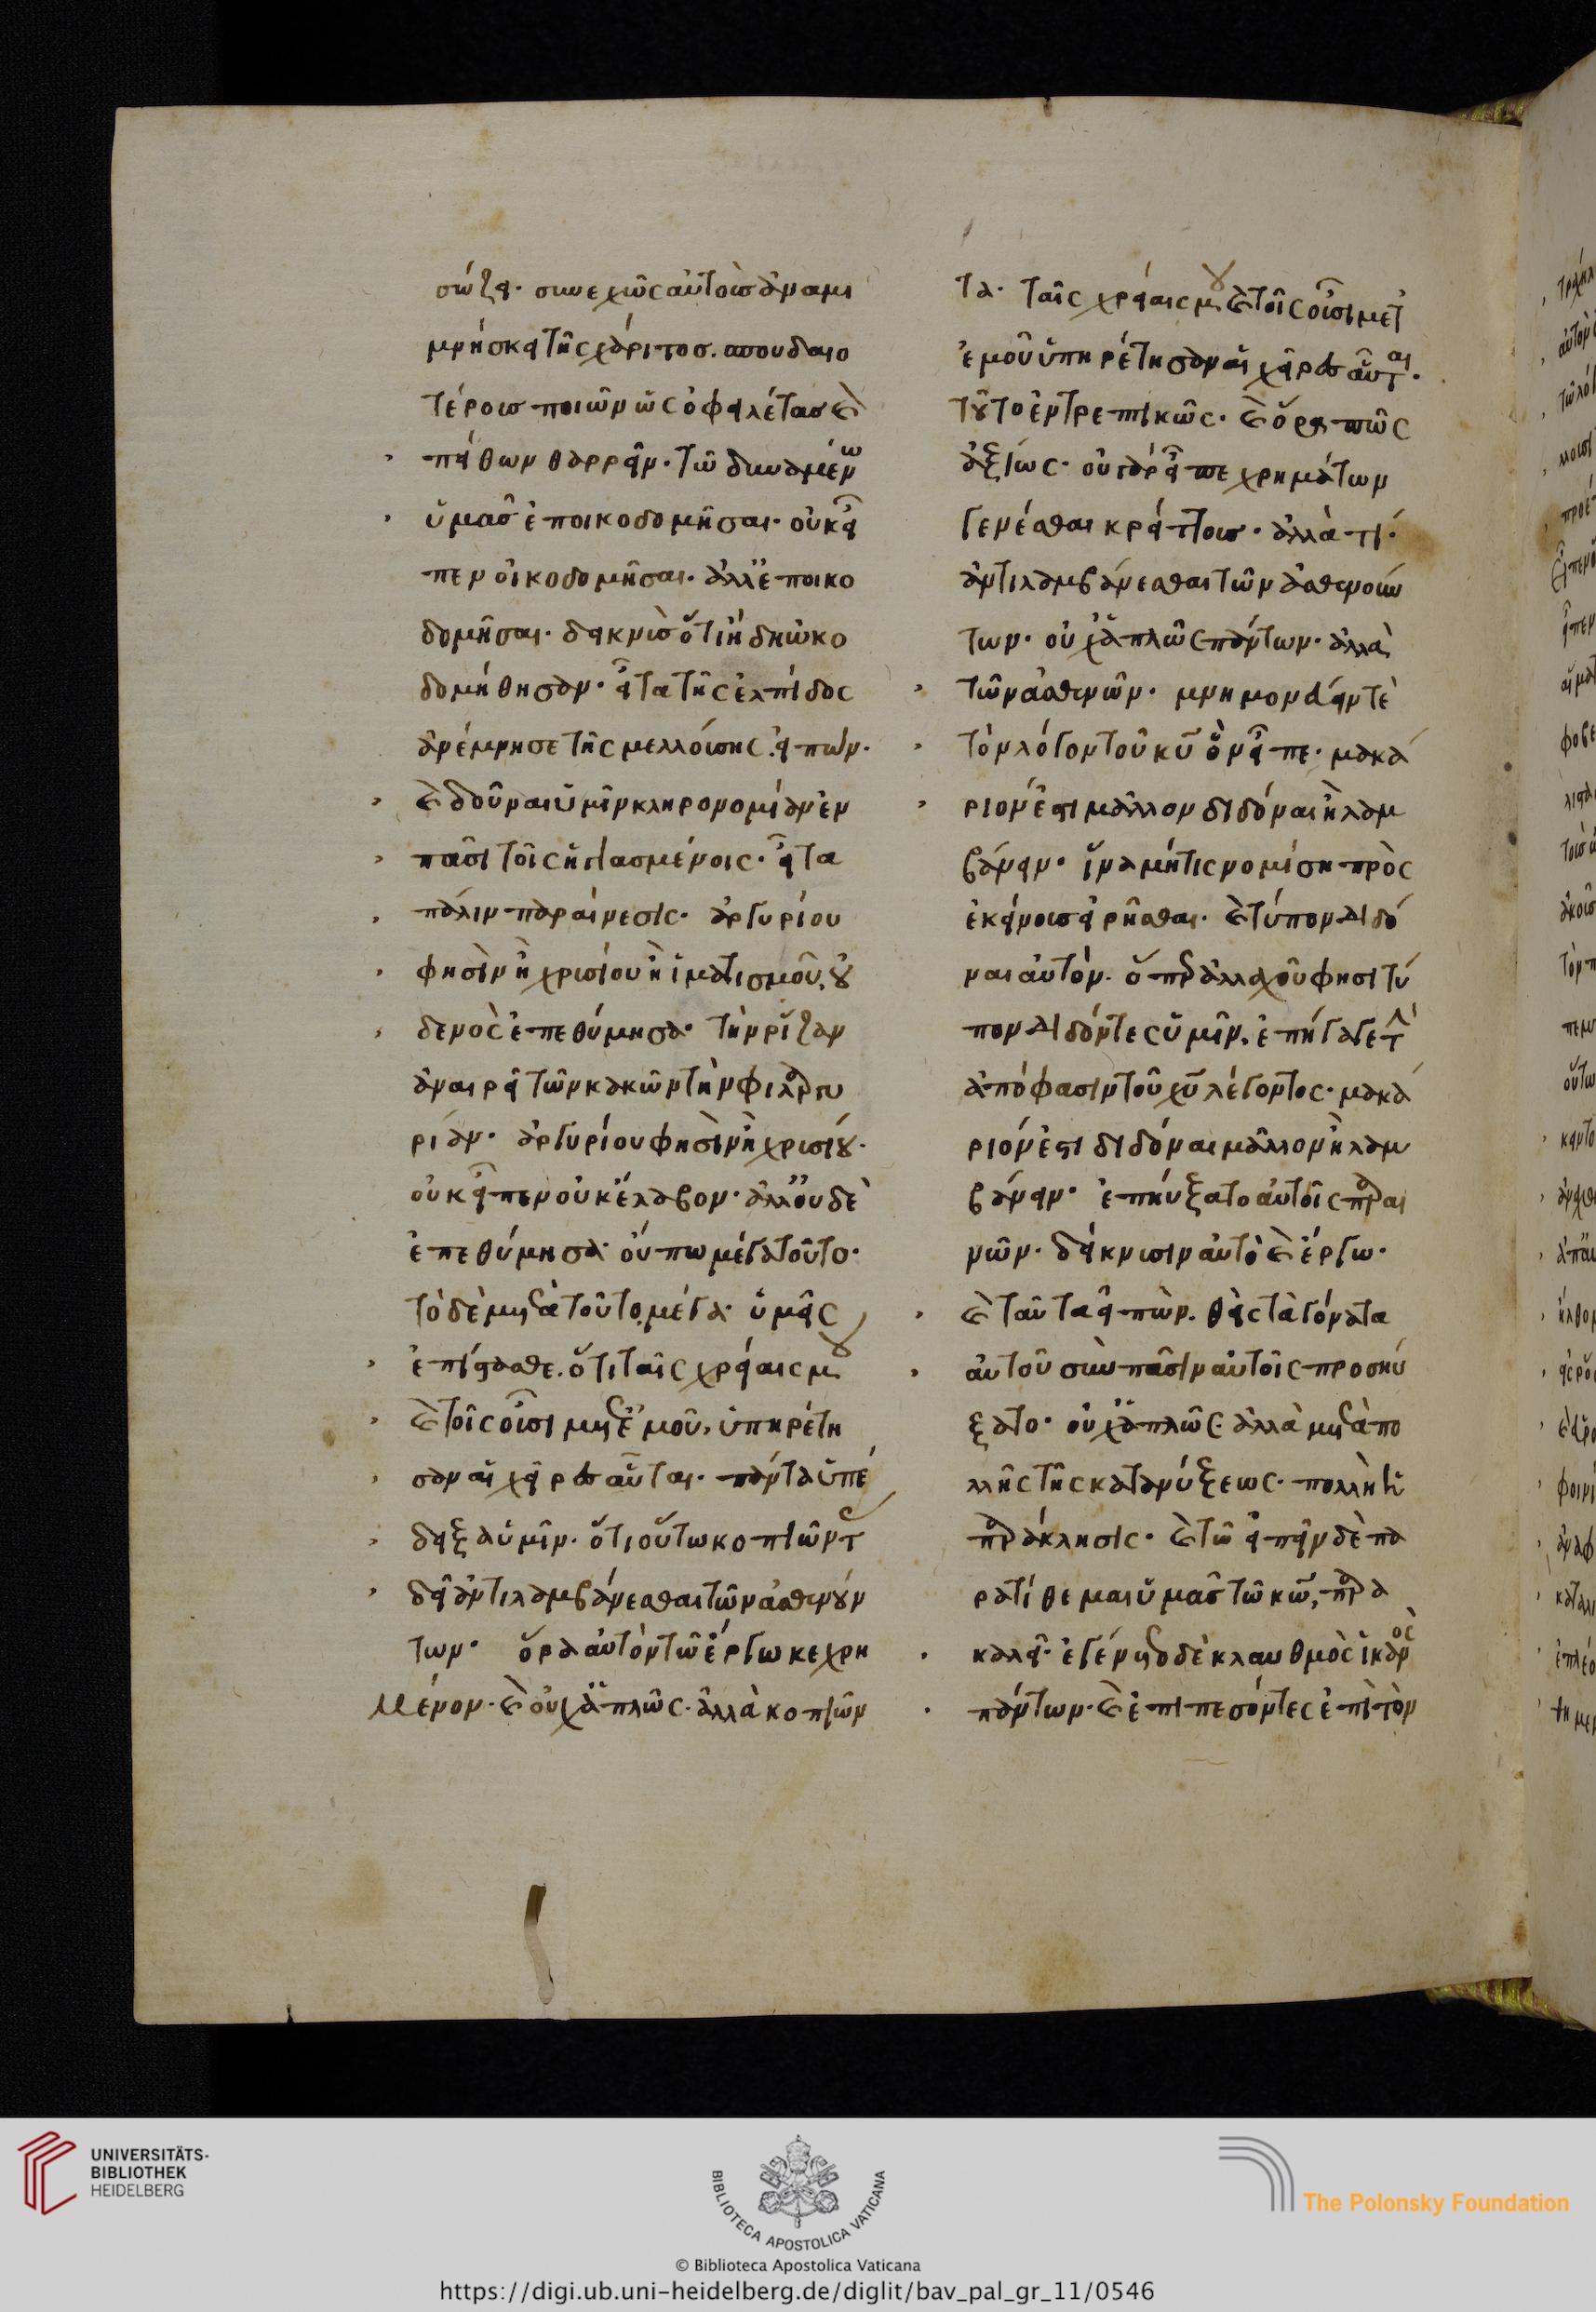 σώζει· συνεχῶς αὐτοὺς ἀναμι
μνήσκει τῆς χάριτος. σπουδαιο
τέρους ποιῶν ὡς ὀφειλέτας καὶ
πείθων θαρρεῖν· τῶ δυναμένω
ὑμᾶς ἐποικοδομῆσαι· οὐκ εἶ
πεν οἰκοδομῆσαι· ἀλλ' ἐποικο
δομῆσαι· δεικνὺς ὅτι ἤδη ὠκο
δομήθησαν· εἶτα τῆς ἐλπίδος
ἀνέμνησε τῆς μελλούσης εἰπών·
καὶ δοῦναι ὑμῖν κληρονομίαν ἐν
πᾶσι τοῖς ἡγιασμένοις· εἶτα
πάλιν παραίνεσις· ἀργυρίου
φησὶν ἢ χρυσίου ἢ ἱματισμοῦ, οὐ
δενὸς ἐπεθύμησα· τὴν ῥίζαν
ἀναιρεῖ τῶν κακῶν τὴν φιλαργυ
ρίαν· ἀργυρίου φησὶν ἢ χρυσίου·
οὐκ εἶπεν οὐκ ἔλαβον· ἀλλ' οὐδὲ
ἐπεθύμησα· οὔπω μέγα τοῦτο·
τὸ δὲ μετὰ τοῦτο μέγα· ὑμεῖς
ἐπίστασθε. ὅτι ταῖς χρείαις μου
καὶ τοῖς οὖσι μετ' ἐμοῦ, ὑπηρέτη
σαν αἱ χεῖρες αὗται· πάντα ὑπέ
δειξα ὑμῖν· ὅτι οὕτω κοπιῶντας
δεῖ ἀντιλαμβάνεσθαι τῶν ἀσθενούν
των· ὅρα αὐτὸν τῶ ἔργω κεχρη
μένον· καὶ οὐχ ἁπλῶς· ἀλλὰ κοπιῶν
τα· ταῖς χρείαις μου καὶ τοῖς οὖσι μετ'
ἐμοῦ ὑπηρέτησαν αἱ χεῖρες αὗται·
τοῦτο ἐντρεπτικῶς· καὶ ὅρα πῶς
ἀξίως· οὐ γὰρ εἶπε χρημάτων
γενέσθαι κρείττους· ἀλλὰ τί·
ἀντιλαμβάνεσθαι τῶν ἀσθενούν
των· οὐχ ἁπλῶς πάντων· ἀλλὰ
τῶν ἀσθενῶν· μνημονεύειν τὲ
τὸν λόγον τοῦ κυ ὃν εἶπε· μακά
ριόν ἐστι μᾶλλον διδόναι ἢ λαμ
βάνειν· ἵνα μή τις νομίση πρὸς
ἐκείνους εἰρῆσθαι· καὶ τύπον διδό
ναι αὐτόν· ὅπερ ἀλλαχοῦ φησι τύ
πον διδόντες ὑμῖν. ἐπήγαγε τὴν
ἀπόφασιν τοῦ χυ λέγοντος· μακά
ριόν ἐστι διδόναι μᾶλλον ἢ λαμ
βάνειν· ἐπηύξατο αὐτοῖς παραι
νῶν· δείκνυσιν αὐτὸ καὶ ἔργω·
καὶ ταῦτα εἰπὼν. θεὶς τὰ γόνατα
αὐτοῦ σὺν πᾶσιν αὐτοῖς προσηύ
ξατο· οὐχ ἁπλῶς ἀλλὰ μετὰ πο
λλῆς τῆς κατανύξεως· πολλὴ ἡ
παράκλησις· καὶ τῶ εἰπεῖν δὲ πα
ρατίθεμαι ὑμᾶς τῶ κω, παρα
καλεῖ· ἐγένετο δὲ κλαυθμὸς ἱκανὸς
πάντων· καὶ ἐπιπεσόντες ἐπὶ τὸν
UNIVERSITÄTS-
BIBLIOTHEK
HEIDELBERG
BIBLIOTECA APOSTOLICA VATICANA
The Polonsky Foundation
© Biblioteca Apostolica Vaticana
https://digi.ub.uni-heidelberg.de/diglit/bav_pal_gr_11/0546